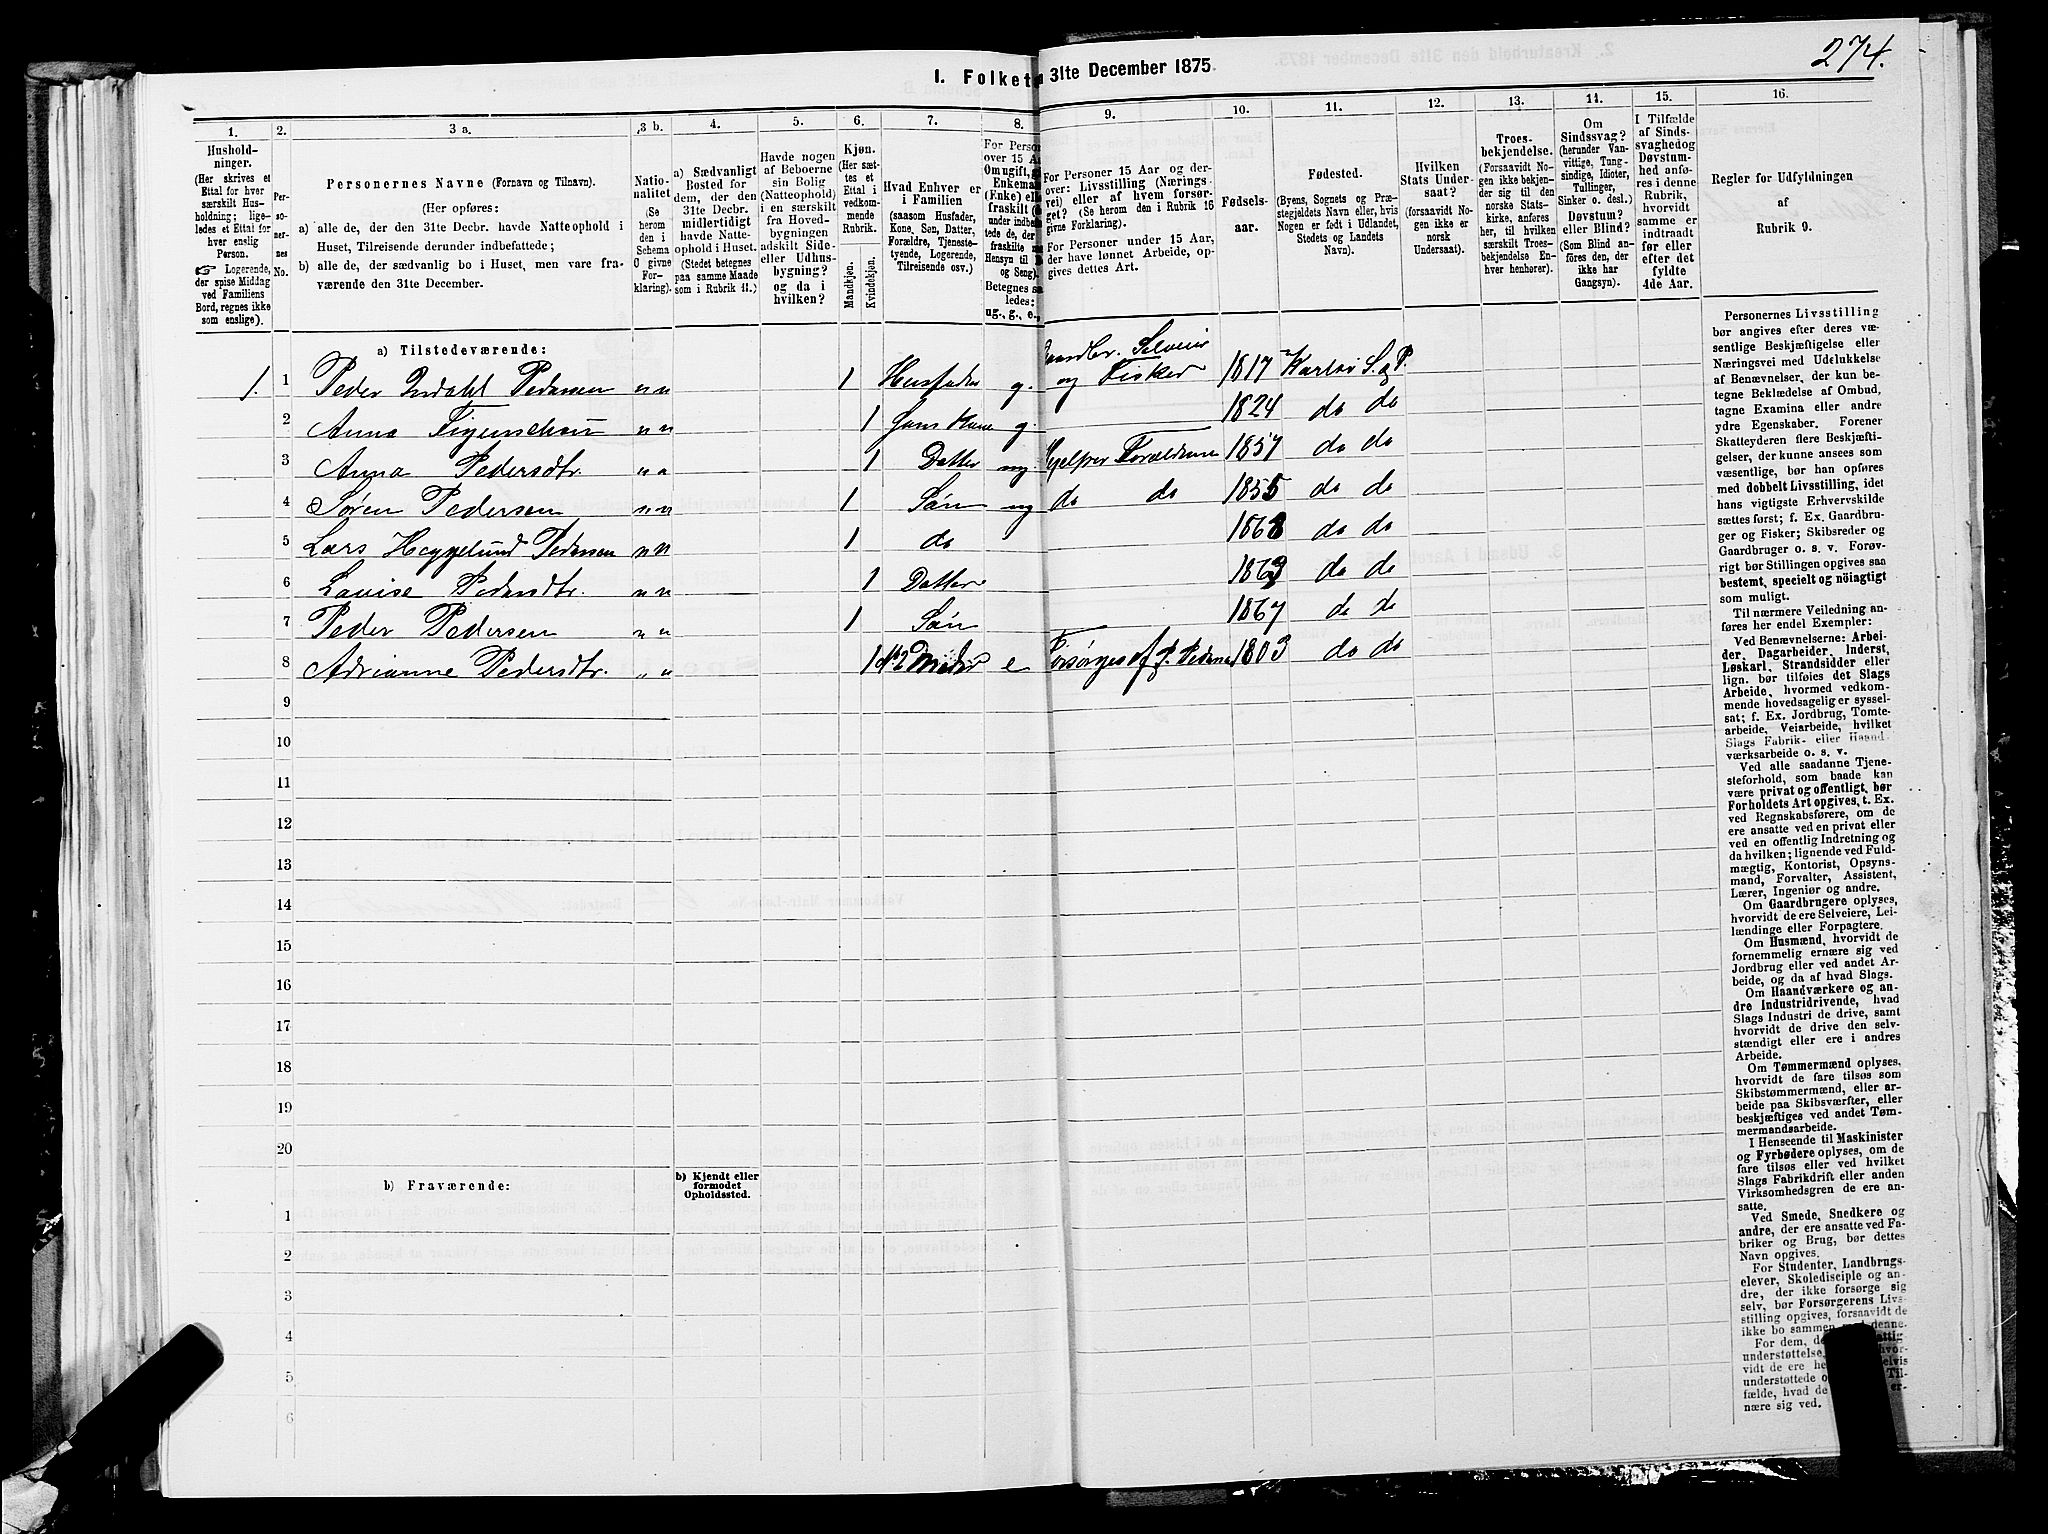 274.
1. Folket 31te December 1875.
1. 2. 3 a. 3 b. 4. 5. 6. 7. 8. 9. 10. 11. 12. 13. 14. 15. 16.
Hushold-
ninger.
(Her skrives et
Ettal for hver
særskilt Hus-
holdning; lige-
ledes et Ettal for
hver enslig
Person.
☞ Logerende,
der spise Middag
ved Familiens
Bord, regnes ikke
som enslige).
Per-
so-
ner-
nes
No.
Personernes Navne (Fornavn og Tilnavn).
(Her opføres:
a) alle de, der den 31te Decbr. havde Natteophold i
Huset, Tilreisende derunder indbefattede;
b) alle de, der sædvanlig bo i Huset, men vare fra-
værende den 31te December.
Natio-
nalitet
(Se
herom
den i
Schema
O givne
For-
klaring).
a) Sædvanligt
Bosted for
dem, der den
31te Decbr.
midlertidigt
havde Natte-
ophold i Huset.
(Stedet betegnes
paa samme Maade
som i Rubrik 11.)
Havde nogen
af Beboerne
sin Bolig
(Natteophold)
i en særskilt
fra Hoved-
bygningen
adskilt Side-
eller Udhus-
bygning?
og da i
hvilken?
Kjøn.
(Her sæt-
tes et
Ettal i
vedkom-
mende
Rubrik.
Mandkjøn.
Kvindekjøn.
Hvad Enhver er
i Familien
(saasom Husfader,
Kone, Søn, Datter,
Forældre, Tjeneste-
tyende, Logerende,
Tilreisende osv.)
For Person
over 15 Aa
Om ugift, g
Enkema
(Enke) ell
fraskilt (
under indbe
tede de, de
fraskilte
Hensyn til B
og Seng).
Betegnes sa
ledes:
ug., g., e.,
For Personer 15 Aar og der-
over: Livsstilling (Nærings
vei) eller af hvem forsør-
get? (Se herom den i Rubrik 16
givne Forklaring).
For Personer under 15 Aar,
der have lønnet Arbeide, op-
gives dettes Art.
Fødsels-
aar.
Fødested.
(Byens, Sognets og Præ-
stegjeldets Navn eller, hvis
Nogen er født i Udlandet,
Stedets og Landets
Navn).
Hvilken
Stats Under-
saat?
(forsaavidt No-
gen ikke er
norsk
Undersaat).
Troes-
bekjendelse.
(Forsaavidt No-
gen ikke bekjen-
der sig til den
norske Stats-
kirke, anføres
her, til hvilken
særskilt Troes-
bekjendelse En-
hver henhører).
Om
Sindssvag?
(herunder Van-
vittige, Tung-
sindige, Idioter,
Tullinger,
Sinker o. desl.)
Døvstum?
eller Blind?
(Som Blind an-
føres den, der
ikke har
Gangsyn).
I Tilfælde
af Sinds-
svaghed og
Døvstum-
hed anfø-
res i denne
Rubrik,
hvorvidt
samme er
indtraadt
før eller
efter det
fyldte
4de Aar.
Regler for Udfyldningen
af
Rubrik 9.
a) Tilstedeværende:
Gaardbr. Selveier
1. 1 Peder Pedersen n n 1 Husfader g. og Fisker 1817 Karlsø S. og P.
2 Anna Figenschau n n 1 Hans Kone g. 1824 do do
3 Anna Pedersdtr. n n 1 Datter ug Hjelper Forældrene 1857 do do
4 Søren Pedersen n n 1 Søn ug do do 1855 do do
5 Lars Heggelund Pedersen n n 1 do do do
6 Lovise Pedersdtr. n n 1 Datter do do
7 Peder Pedersen n n 1 Søn 1867 do do
8 Adrianne Pedersdtr. n n 1 Moder e Forsørges af P. Pedersen 1803 do do
9
10
11
12
13
14
15
16
17
18
19
20
b) Fraværende:
b) Kjendt eller
formodet
Opholdssted.
1
2
3
4
5
6
Personernes Livsstilling
bør angives efter deres væ-
sentlige Beskjæftigelse eller
Næringsvei med Udelukkelse
af Benævnelser, der kun be-
tegne Beklædelse af Ombud,
tagne Examina eller andre
ydre Egenskaber. Forener
Skatteyderen flere Beskjæfti-
gelser, der kunne ansees som
væsentlige, bør han opføres
med dobbelt Livsstilling, idet
hans vigtigste Erhvervskilde
sættes først; f. Ex. Gaardbru-
ger og Fisker; Skibsreder og
Gaardbruger o. s. v. Forøv-
rigt bør Stillingen opgives saa
bestemt, specielt og nöiagtigt
som muligt.
Til nærmere Veiledning an-
føres her endel Exempler:
Ved Benævnelserne: Arbei-
der, Dagarbeider, Inderst,
Løskarl, Strandsidder eller
lign. bør tilføies det Slags
Arbeide, hvormed vedkom-
mende hovedsagelig er syssel-
sat; f. Ex. Jordbrug, Tomte-
arbeide, Veiarbeide, hvilket
Slags Fabrik- eller Haand-
værksarbeide o. s. v.
Ved alle saadanne Tjene-
steforhold, som baade kan
være privat og offentligt, bør
Forholdets Art opgives, t. Ex.
ved Regnskabsførere, om de
ere ansatte ved en privat eller
ved en offentlig Indretning og
da hvilken; lignende ved Fuld-
mægtig, Kontorist, Opsyns-
mand, Forvalter, Assistent,
Lærer, Ingeniør og andre.
Om Gaardbrugere oplyses,
hvorvidt de ere Selveiere, Lei-
lændinge eller Forpagtere.
Om Husmænd, hvorvidt de
fornemmelig ernære sig ved
Jordbrug eller ved andet Ar-
beide, og da af hvad Slags.
Om Haandværkere og an-
dre Industridrivende, hvad
Slags Industri de drive, samt
hvorvidt de drive den selv-
stændigt eller ere i andres
Arbeide.
Om Tømmermænd oplyses,
hvorvidt de fare tilsøs som
Skibstømmermænd, eller ar-
beide paa Skibsværfter, eller
beskjæftiges ved andet Tøm-
mermandsarbeide.
I Henseende til Maskinister
og Fyrbødere oplyses, om de
fare tilsøs eller ved hvilket
Slags Fabrikdrift eller anden
Virksomhedsgren de ere an-
satte.
Ved Smede, Snedkere og
andre, der ere ansatte ved Fa-
briker og Brug, bør dettes
Navn opgives.
For Studenter, Landbrugs-
elever, Skoledisciple og an-
dre, der ikke forsørge sig
selv, bør Forsørgerens Livs-
stilling opgives, forsaavidt de
ikke bo sammen med denne.
For dem, de
understøttelse,
vidt de ere he
understöttede o
fælde, hvad de
nære sig ved.